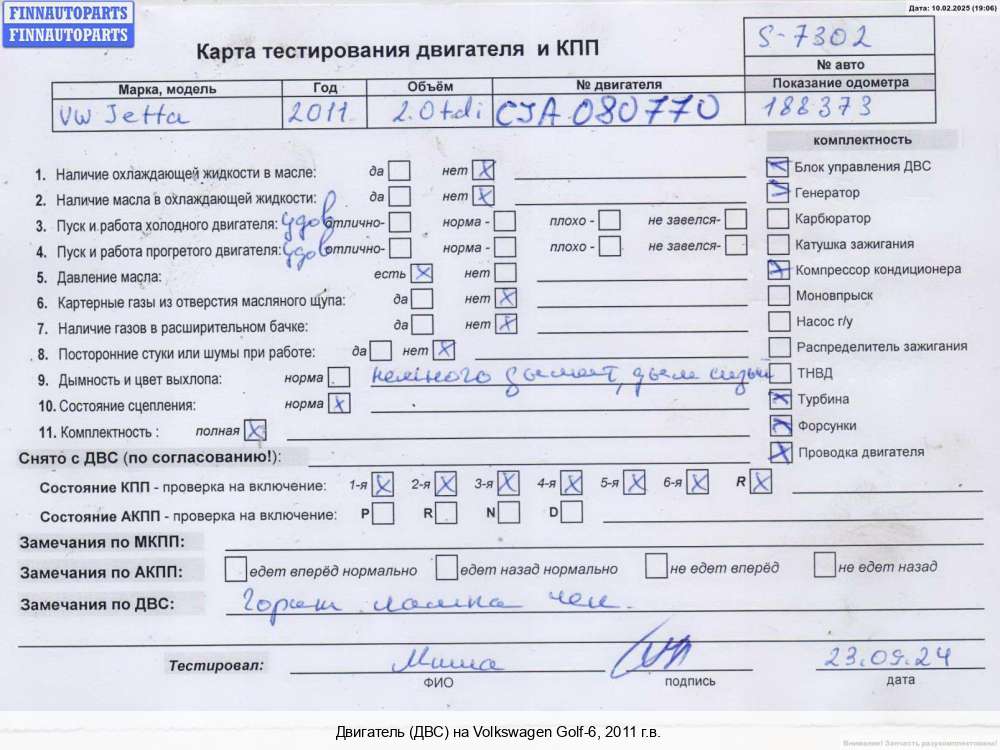 FINNAUTOPARTS
FINNAUTOPARTS
Дата: 10.02.2025 (19:06)
Карта тестирования двигателя и КПП
S-7302
№ авто
Марка, модель Год Объём № двигателя Показание одометра
VW Jetta 2011 2.0 tdi CJA 080770 188373
комплектность
1. Наличие охлаждающей жидкости в масле: да нет X
Блок управления ДВС
2. Наличие масла в охлаждающей жидкости: да нет X
Генератор
3. Пуск и работа холодного двигателя: удов отлично- норма - плохо - не завелся-
Карбюратор
4. Пуск и работа прогретого двигателя: удов отлично- норма - плохо - не завелся-
Катушка зажигания
5. Давление масла: есть X нет
Компрессор кондиционера
6. Картерные газы из отверстия масляного щупа: да нет X
Моновпрыск
7. Наличие газов в расширительном бачке: да нет X
Насос г/у
8. Посторонние стуки или шумы при работе: да нет X
Распределитель зажигания
9. Дымность и цвет выхлопа: норма немного дымит, дым сизый
ТНВД
10. Состояние сцепления: норма X
Турбина
11. Комплектность : полная X
Форсунки
Снято с ДВС (по согласованию!):
Проводка двигателя
Состояние КПП - проверка на включение: 1-я X 2-я X 3-я X 4-я X 5-я X 6-я X R X
Состояние АКПП - проверка на включение: P R N D
Замечания по МКПП:
Замечания по АКПП: едет вперёд нормально едет назад нормально не едет вперёд не едет назад
Замечания по ДВС: Горит лампа чек.
Тестировал: Миша 23.09.24
ФИО подпись дата
Двигатель (ДВС) на Volkswagen Golf-6, 2011 г.в.
Внимание! Запчасть разукомплектована!